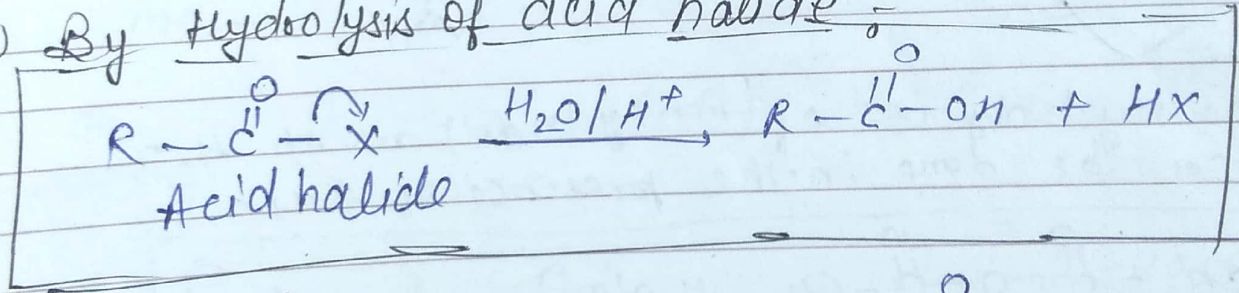 ) By Hydrolysis of acid halide :-
O O
R - C - X H2O/H+ R - C - OH + HX
Acid halide
O